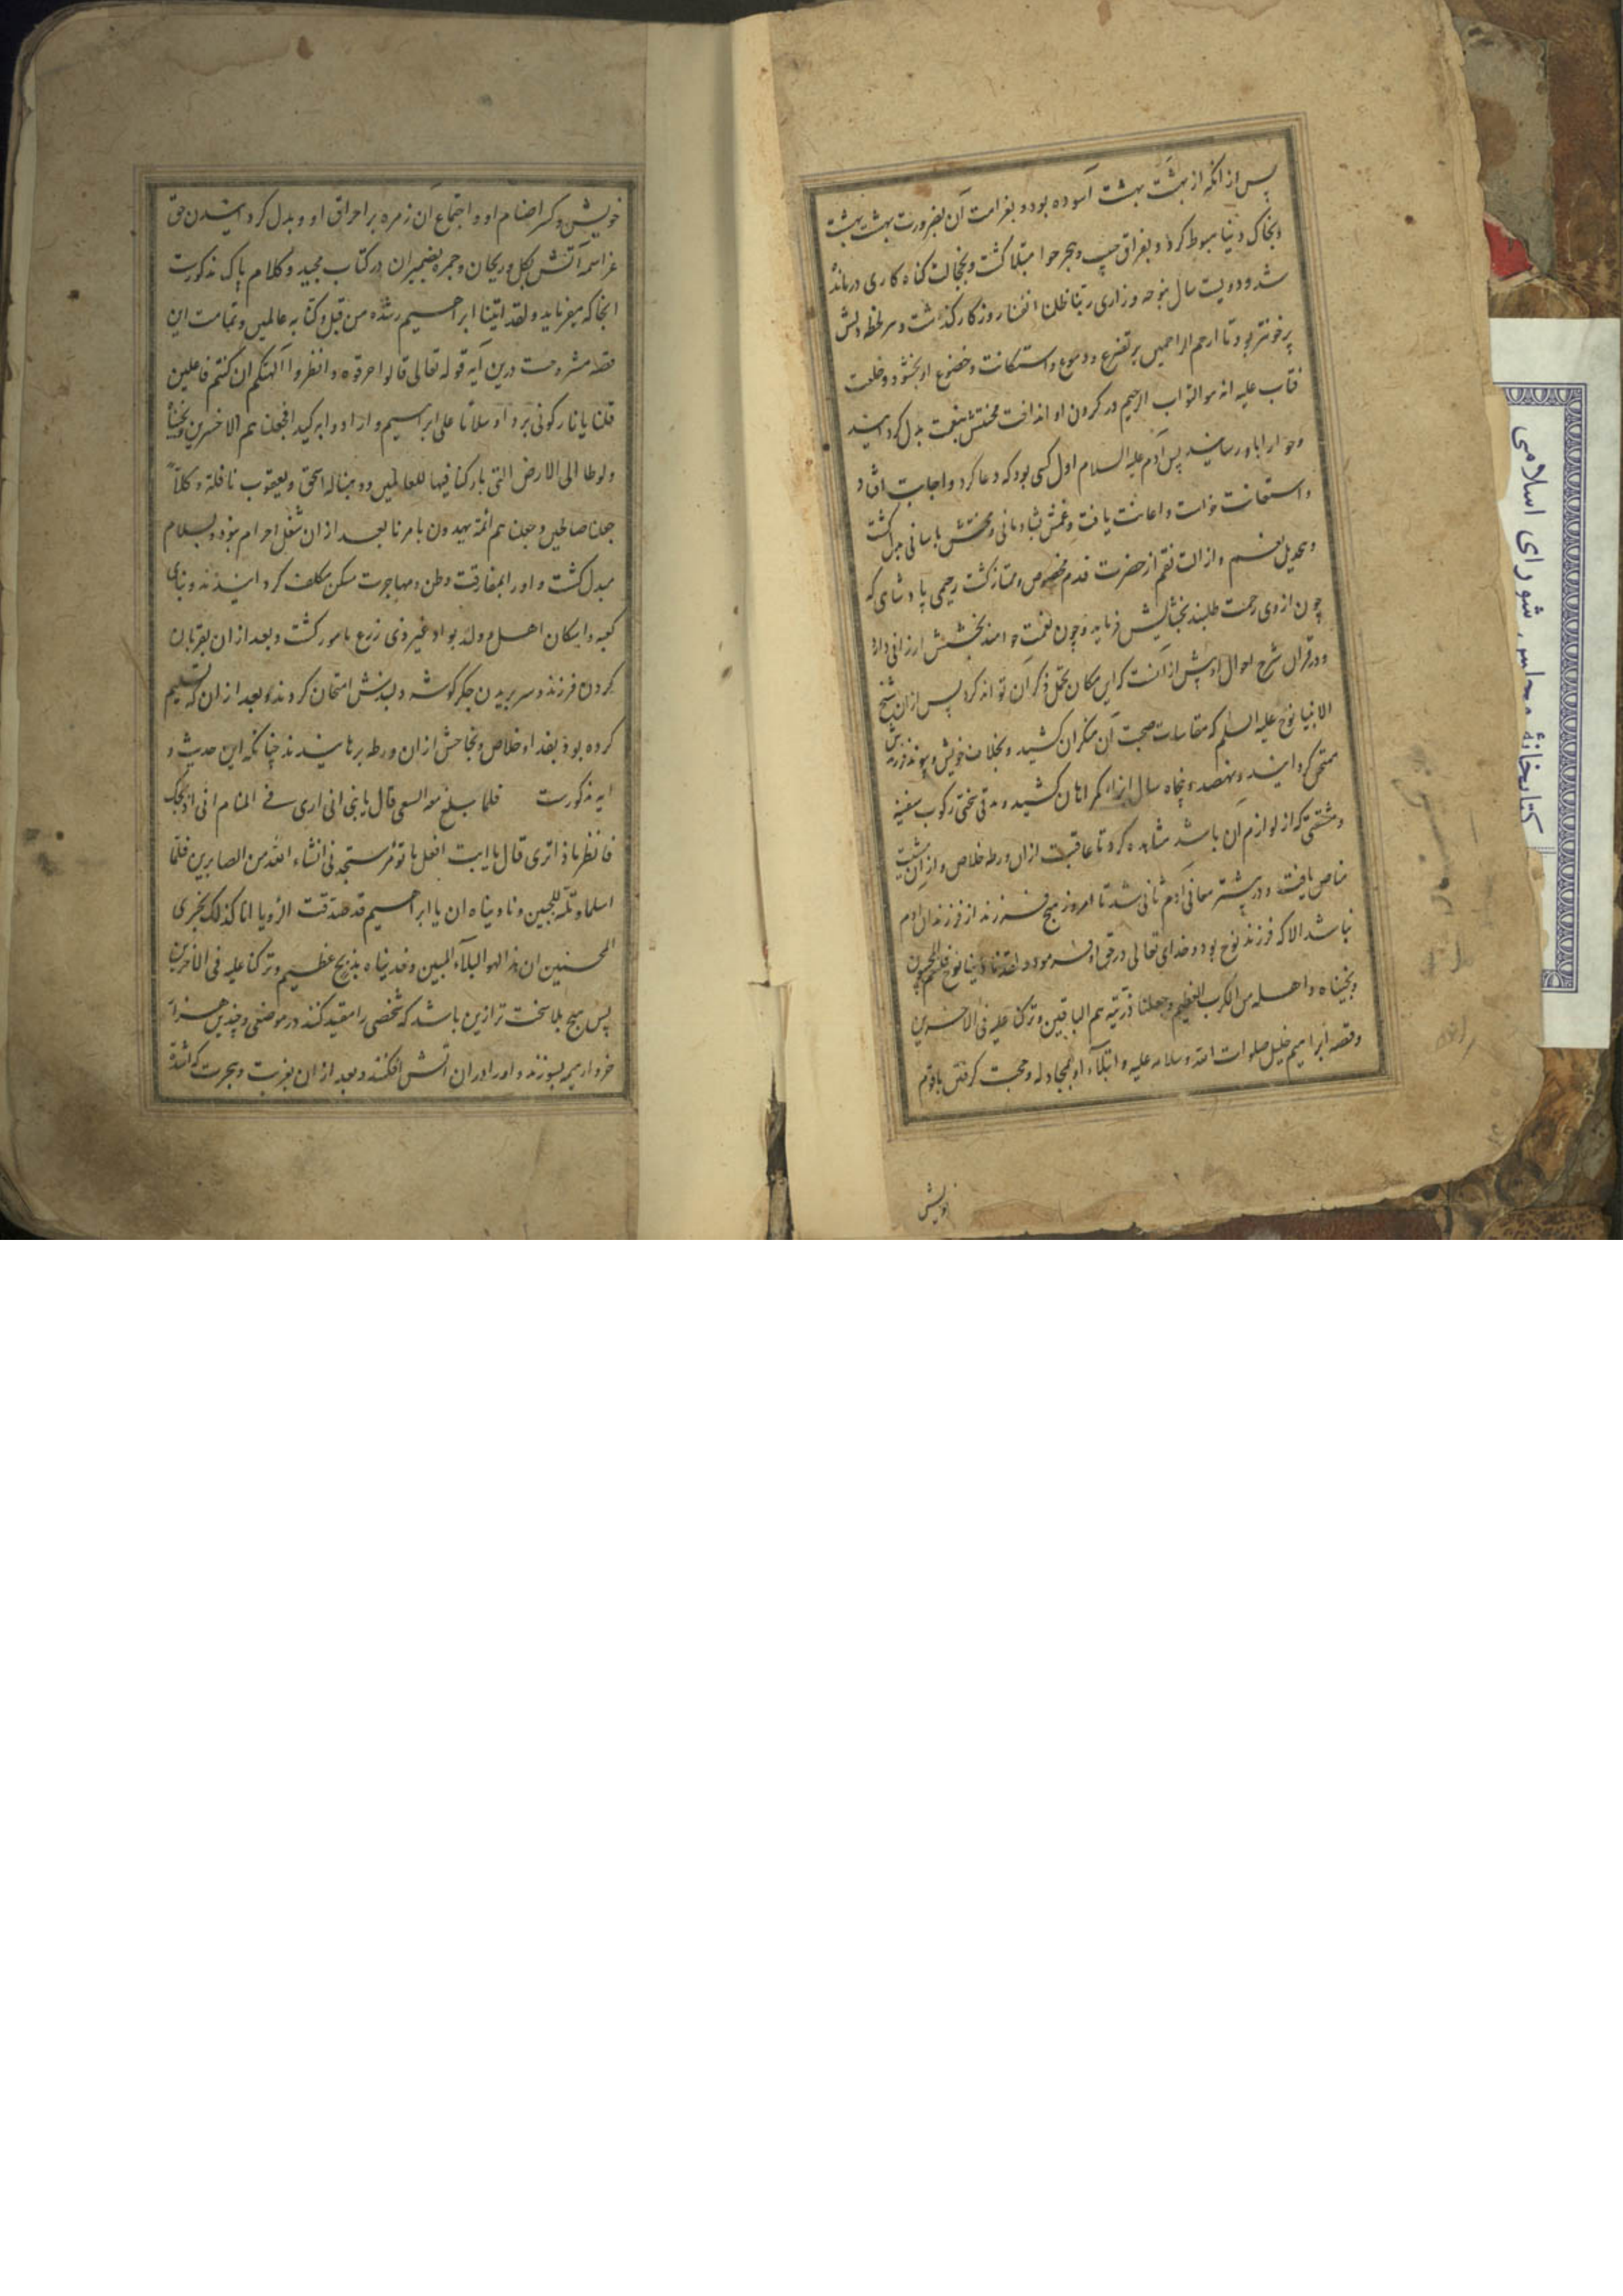 پس از انکه از بهشت بهشت آسوده بود و بغرامت آن بضرورت بهشت بهشت
و بخاک دنیا هبوط کرد و بفراق حبیب و هجر حوا مبتلا کشت و بخجالت کناه کاری درمانده
شد و دویست سال بنوحه و زاری ربنا ظلمنا انفسنا روزکار کذاشت و هر لحظه دلش
پرخونتر بود تا ارحم الراحمین بر تضرع و دموع و استکانت و خضوع او بخشود و خلعت
فتاب علیه انه هو التواب الرحیم در کردن او انداخت محنتش بنعمت بدل کردانید
و حوا را باو رسانید پس آدم علیه السلام اول کسی بود که دعا کرد و اجابت افتاد
و استعانت خواست و اعانت یافت و غمش بشادمانی و محنتش باسانی مبدل کشت
و بتحویل نعم و ازالت نقم از حضرت قدم مخصوص و ممتاز کشت رحیمی پادشاهی که
چون از وی رحمت طلبند بخشایش فرماید و چون نعمت خواهند بخشش ارزانی دارد
و در قران شرح احوال او بیش از آنست که این مکان تحمل ذکر آن تواند کرد پس ازان شیخ
الانبیا نوح علیه السلم که مقاسات صحبت آن منکران کشید و بخلاف خویش و پیوند و فرزندش
ممتحن کردانید و نهصد و پنجاه سال ایذاء کمراهان کشید و مدتی سختی رکوب سفینه
و مشقتی که از لوازم آن باشد مشاهده کرد تا عاقبت ازان ورطه خلاص و از آن
مناص یافت و در بیشتر معانی آدم ثانی شد تا امروز هیچ فرزند از فرزندان آدم
نباشد الا که فرزند نوح بود و خدای تعالی در حق او فرمود و لقد نادینا نوح فلنعم المجیبون
و نجیناه و اهله من الکرب العظیم و جعلنا ذریته هم الباقین و ترکنا علیه فی الاخرین
و قصه ابراهیم خلیل صلوات الله و سلامه علیه و ابتلاء او بمجادله و محبت کرفتن با قوم
خویش
خویش و کسر اصنام او و اجتماع آن زمره بر احراق او و بدل کردانیدن حق
عز اسمه آتش بکل و ریحان و جمره بضمیران در کتاب مجید و کلام پاک مذکورست
انجا که میفرماید و لقد اتینا ابراهیم رشده من قبل و کنا به عالمین و تمامت این
قصه مشروحست درین آیه قوله تعالی قالوا حرقوه و انظروا آلهتکم ان کنتم فاعلین
قلنا یا نار کونی بردا و سلاما علی ابراهیم و ارادوا به کیدا فجعلناهم الاخسرین و نجیناه
و لوطا الی الارض التی بارکنا فیها للعالمین و وهبنا له اسحق و یعقوب نافلة و کلا
جعلنا صالحین و جعلناهم ائمة یهدون بامرنا بعد از ان شغل احرام بود و بسلام
مبدل کشت و او را بمفارقت وطن و مهاجرت مسکن مکلف کردانیدند و بنای
کعبه و اسکان اهل و ولد بواد غیر ذی زرع مامور کشت و بعد ازان بقربان
کردن فرزند و سر بریدن جکر کوشه و دلبندش امتحان کردند و بعد ازان که تسلیم
کرده بود بفدا و خلاص و نجاحش ازان ورطه برهانیدند چنانکه این حدیث و
ایه مذکورست فلما بلغ معه السعی قال یا بنی انی اری فی المنام انی اذبحک
فانظر ماذا تری قال یا ابت افعل ما تؤمر ستجدنی انشاء الله من الصابرین فلما
اسلما و تله للجبین و نادیناه ان یا ابراهیم قد صدقت الرؤیا انا کذلک نجزی
المحسنین ان هذا لهو البلاء المبین و فدیناه بذبح عظیم و ترکنا علیه فی الاخرین
پس هیچ بلا سخت تر ازین باشد که شخصی را مقید کنند در موضعی و چندین هزار
خروار هیمه بسوزند و او را در ان اتش افکنند و بعد ازان بغربت و هجرت که اشد
کتابخانهٔ مجلس شورای اسلامی